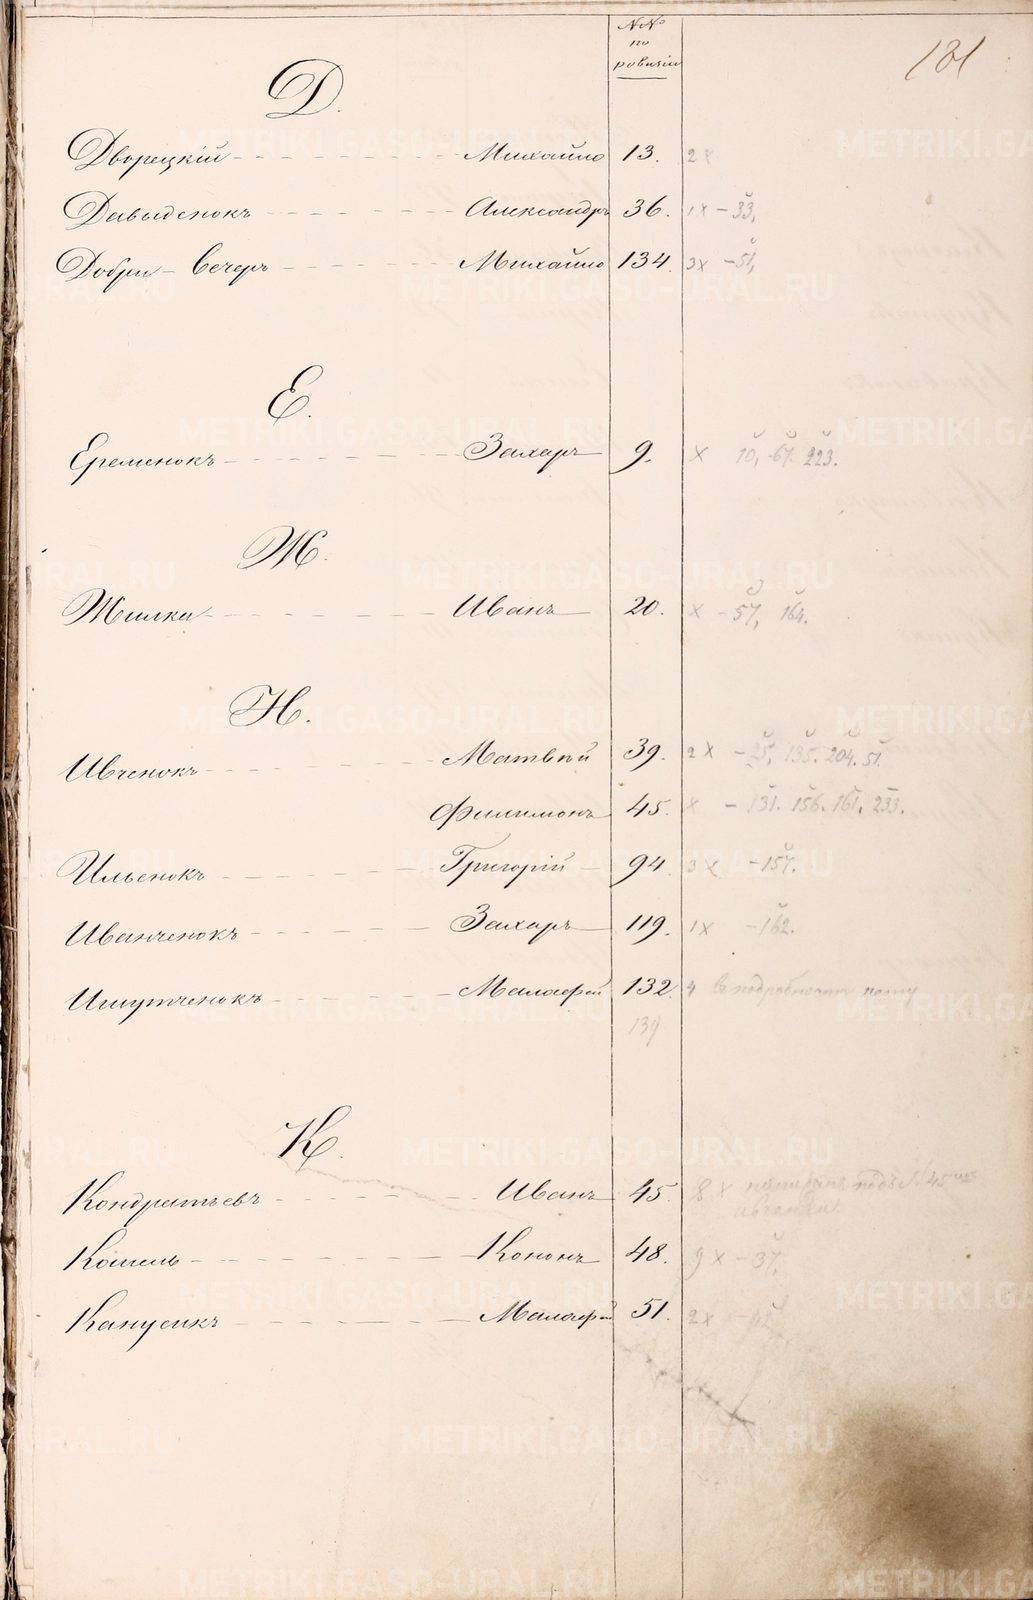 №№
по
ревизіи
181
Д.
Дворецкій Михайло 13. 2 х
Давыденокъ Александръ 36. 1 х – 33,
Добри-Вечеръ Михайло 134. 3х – 51,
Е.
Еременокъ Захаръ 9. х 10, 67. 223.
Ж.
Жилка Иванъ 20. х – 57, 164.
И.
Ивченокъ Матвѣй 39. 2 х – 25, 135. 204. 51.
Филимонъ 45. х – 131. 156. 161, 233.
Ильенокъ Григорій 94. 3 х – 157.
Иванченокъ Захаръ 119. 1 х – 162.
Ишутченокъ Малафей 132. 4
139
К.
Кондратьевъ Иванъ 45. 8 х подъ № 45
Кошель Кононъ 48. 9 х – 37,
Канусикъ Малафей 51. 2 х – 62
METRIKI.GASO-URAL.RU